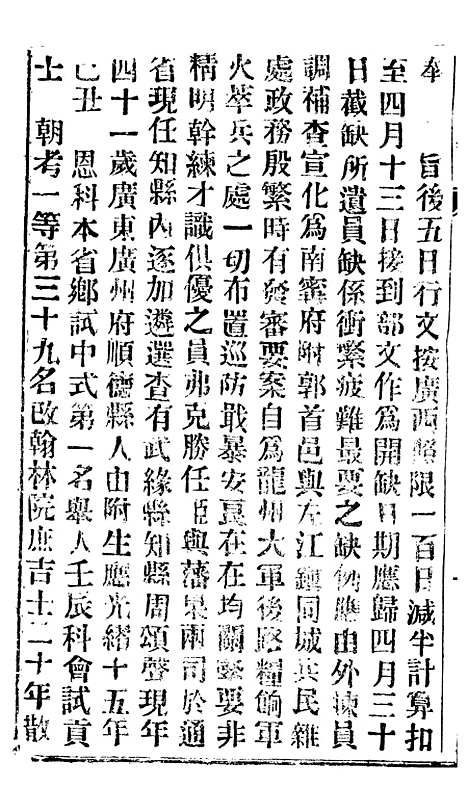 奉　　旨後五日行文按廣西照限一百日減半計算扣
至四月十三日接到部文作爲開缺日期應歸四月三十
日截缺所遺員缺係衝繁疲難最要之缺例應由外揀員
調補查宣化爲南甯府附郭首邑與左江鎭同城兵民雜
處政務殷繁時有發審要案自爲龍州大軍後路糧餉軍
火萃兵之處一切布置巡防戢暴安良在在均關緊要非
精明幹練才識俱優之員弗克勝任臣與藩臬兩司於通
省現任知縣內逐加遴選查有武緣縣知縣周頌聲現年
四十一歲廣東廣州府順德縣人由附生應光緒十五年
己丑　恩科本省鄕試中式第一名舉人壬辰科會試貢
士　朝考一等第三十九名改翰林院庶吉士二十年散